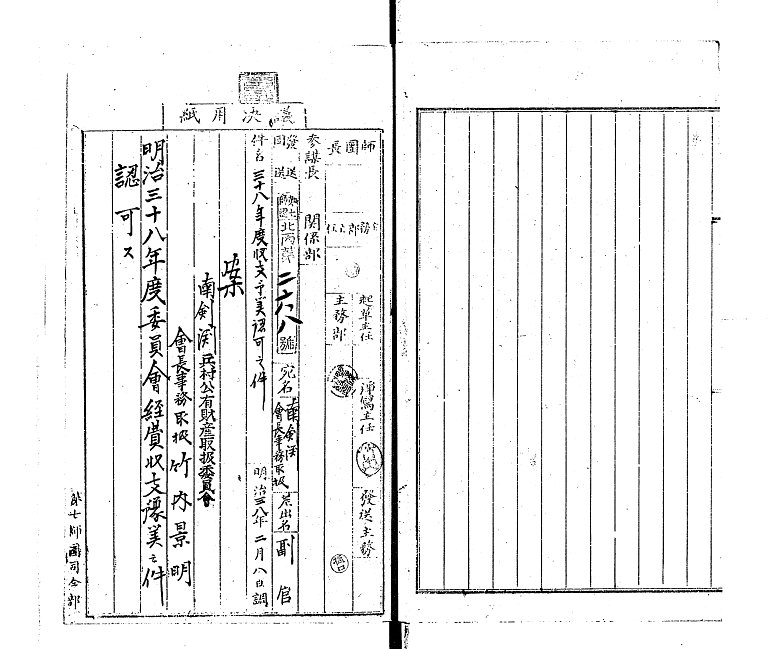 議決用紙
師團長
参謀長
関係部
主務部
起草主任
淨寫主任
發送主務
發送
北丙第二六八號
宛名 南剣渕
會長事務取扱
差出名 副官
件名 三十八年度収支予算認可之件
明治三八年二月八日調
案
南剣渕兵村公有財産取扱委員會
會長事務取扱 竹内景明
明治三十八年度委員會経費収支豫算之件
認可ス
第七師團司令部